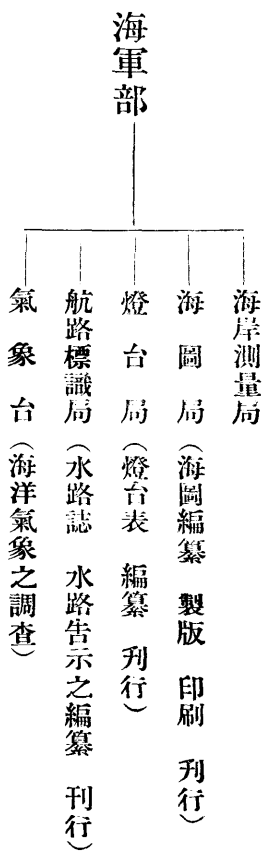 海軍部
海岸測量局
海圖局（海圖編纂　製版　印刷　刊行）
燈台局（燈台表　編纂　刊行）
航路標識局（水路誌　水路告示之編纂　刊行）
氣象台（海洋氣象之調査）